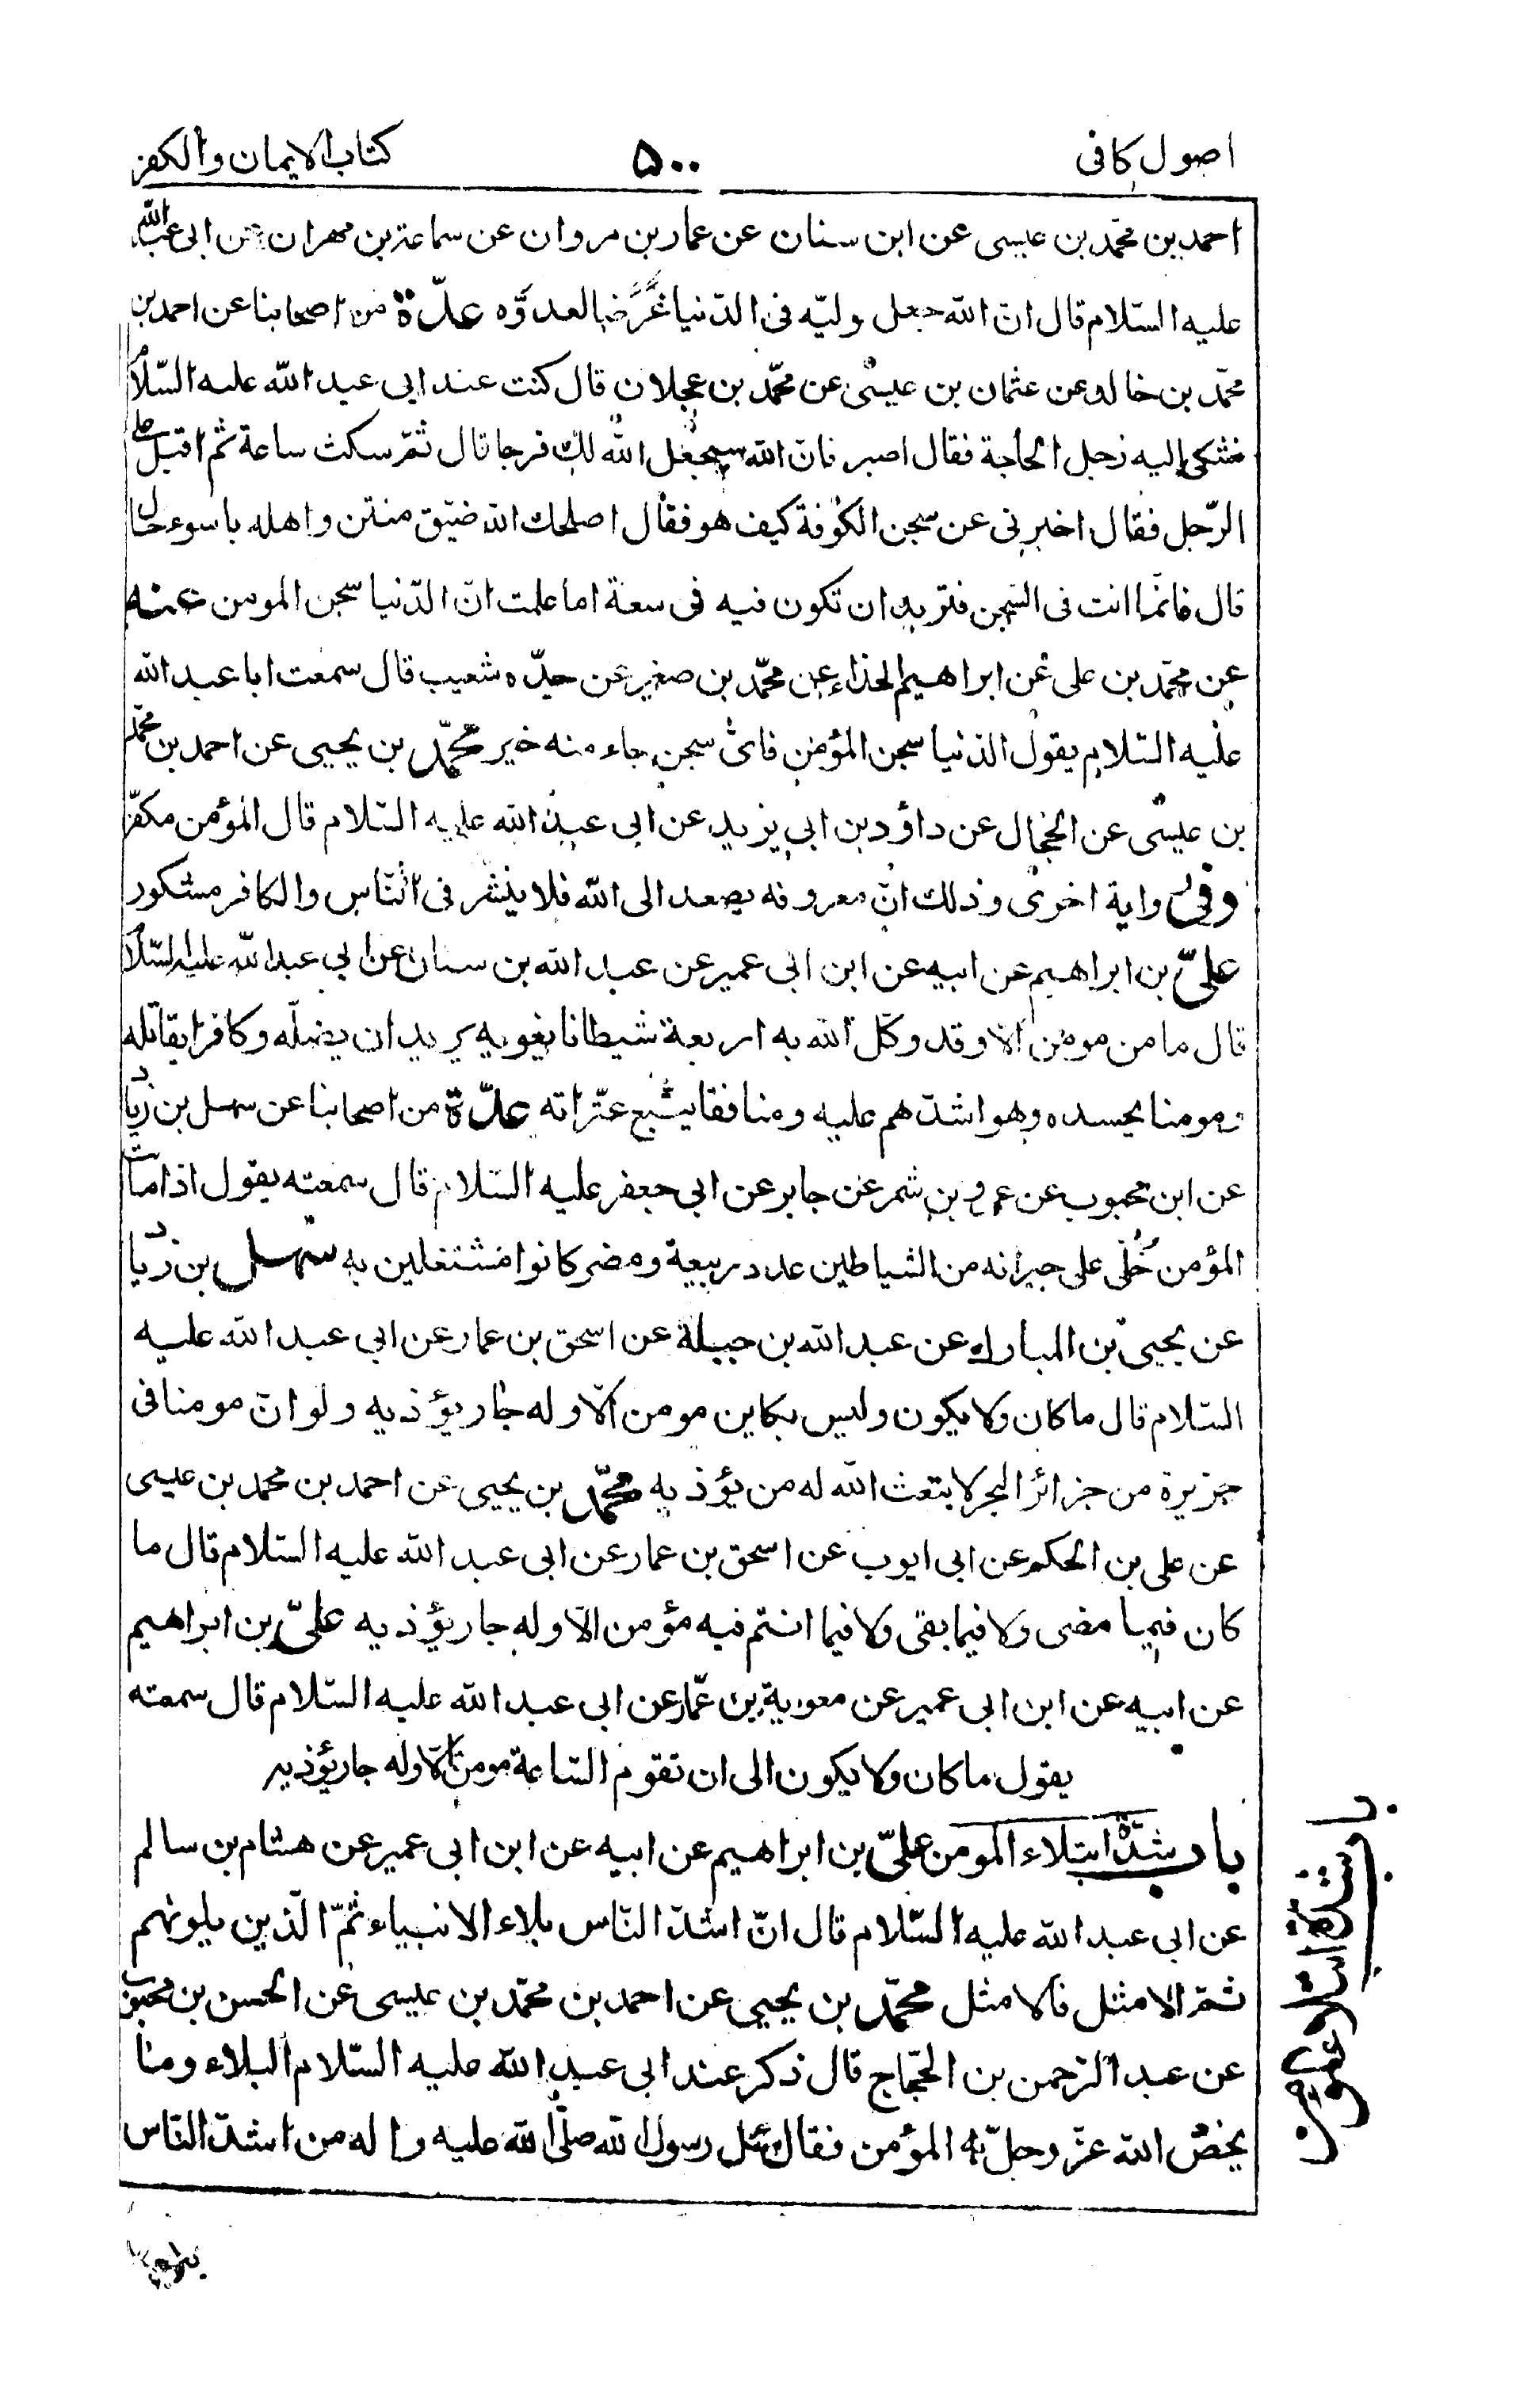 اصول كافى ۵۰۰ كتاب الايمان والكفر
احمد بن محمّد بن عيسى عن ابن سنان عن عمار بن مروان عن سماعة بن مهران عن ابى عبد الله
عليه السّلام قال انّ الله جعل وليّه فى الدّنيا غَرَضا لعدوّه عدّة من اصحابنا عن احمد بن
محمّد بن خالد عن عثمان بن عيسى عن محمّد بن عجلان قال كنت عند ابى عبد الله عليه السّلام
فشكى اليه رجل الحاجة فقال اصبر فانّ الله سيجعل الله لك فرجا قال ثمّ سكت ساعة ثم اقبل على
الرّجل فقال اخبرنى عن سجن الكوفة كيف هو فقال اصلحك الله ضيّق منتن واهله باسوء حال
قال فانّما انت فى السّجن فتريد ان تكون فيه فى سعة اما علمت انّ الدّنيا سجن المومن عنه
عن محمّد بن على عن ابراهيم الحذاء عن محمّد بن صغير عن جدّه شعيب قال سمعت ابا عبد الله
عليه السّلام يقول الدّنيا سجن المؤمن فاىّ سجن جاء منه خير محمّد بن يحيى عن احمد بن محمّد
بن عيسى عن الحجّال عن داؤد بن ابى يزيد عن ابى عبد الله عليه السّلام قال المؤمن مكفّر
وفى رواية اخرى وذلك انّ معروفه يصعد الى الله فلا ينشر فى النّاس والكافر مشكور
علىّ بن ابراهيم عن ابيه عن ابن ابى عمير عن عبد الله بن سنان عن ابى عبد الله عليه السّلام
قال ما من مومن الّا وقد وكّل الله به اربعة شيطانا يغويه يريد ان يضلّه وكافرا يقاتله
ومومنا يحسده وهو اشدّهم عليه ومنافقا يتّبع عثراته عدّة من اصحابنا عن سهل بن زياد
عن ابن محبوب عن عمرو بن شمر عن جابر عن ابى جعفر عليه السّلام قال سمعته يقول اذا مات
المؤمن خُلّى على جيرانه من الشياطين عدد ربيعة ومضر كانوا مشتغلين به سهل بن زياد
عن يحيى بن المبارك عن عبد الله بن جبلة عن اسحق بن عمار عن ابى عبد الله عليه
السّلام قال ما كان ولا يكون وليس بكاين مومن الّا وله جار يؤذيه ولو انّ مومنا فى
جزيرة من جزائر البحر لابتعث الله له من يؤذيه محمّد بن يحيى عن احمد بن محمد بن عيسى
عن على بن الحكم عن ابى ايوب عن اسحق بن عمار عن ابى عبد الله عليه السّلام قال ما
كان فيما مضى ولا فيما بقى ولا فيما انتم فيه مؤمن الّا وله جار يؤذيه علىّ بن ابراهيم
عن ابيه عن ابن ابى عمير عن معوية بن عمّار عن ابى عبد الله عليه السّلام قال سمعته
يقول ما كان ولا يكون الى ان تقوم السّاعة مومن الّا وله جار يؤذيه
باب شدّة ابتلاء المومن علىّ بن ابراهيم عن ابيه عن ابن ابى عمير عن هشام بن سالم
عن ابى عبد الله عليه السّلام قال انّ اشدّ النّاس بلاء الانبياء ثمّ الّذين يلونهم
ثمّ الامثل فالامثل محمّد بن يحيى عن احمد بن محمّد بن عيسى عن الحسن بن محبوب
عن عبد الرّحمن بن الحجّاج قال ذكر عند ابى عبد الله عليه السّلام البلاء وما
يخصّ الله عزّ وجلّ به المؤمن فقال سئل رسول الله صلّى الله عليه واله من اشدّ النّاس
باب شدّة ابتلاء المومن